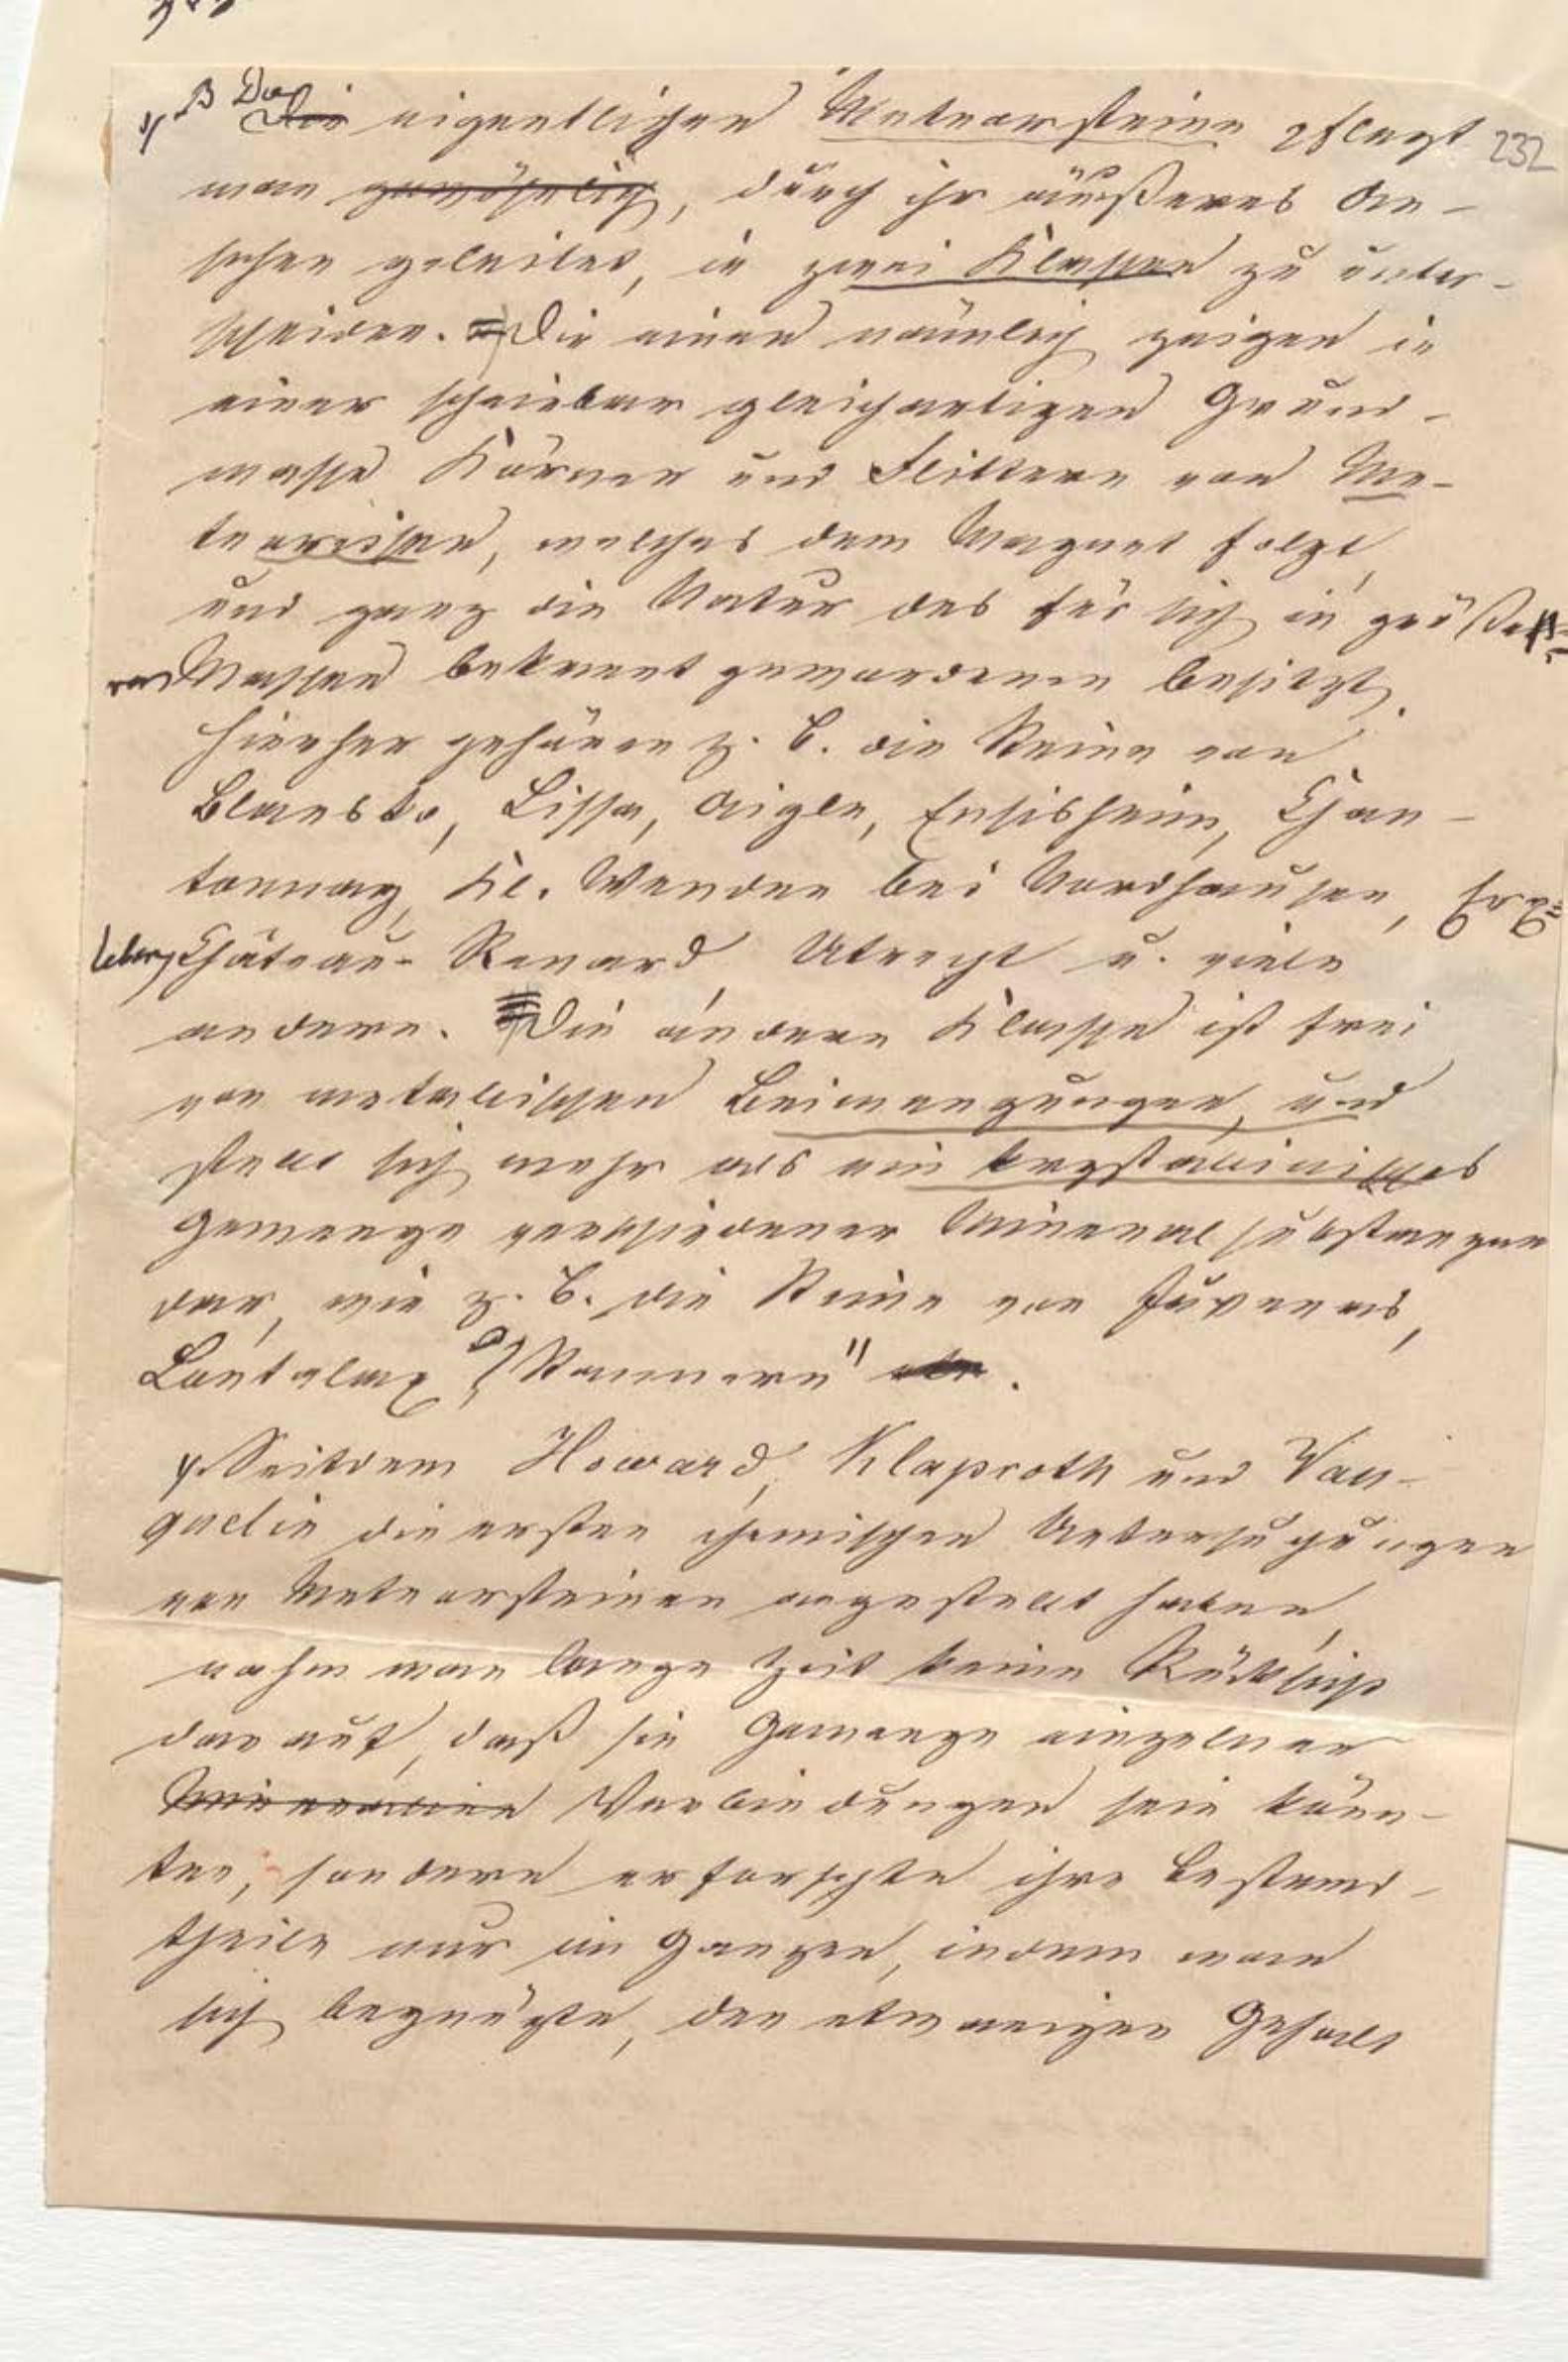 232
B Die eigentlichen Meteorsteine pflegt
man gewöhnlich, durch ihr äußeres An-
sehen geleitet, in zwei Klassen zu unter-
scheiden. Die einen nämlich zeigen in
einer scheinbar gleichartigen Grund-
masse Körner und Flittern von Me-
teoreisen, welches dem Magnet folgt,
und ganz die Natur des für sich in größe-
ren Massen bekannt gewordenen besitzt.
Hierher gehören z. B. die Steine von
Blansko, Lissa, Aigle, Ensisheim, Chan-
tonnay, Kl. Wenden bei Nordhausen, Erx-
leben, Château-Renard, Utrecht u. viele
andere. Die andere Klasse ist frei
von metallischen Beimengungen, und
stellt sich mehr als ein krystallinisches
Gemenge verschiedener Mineralsubstanzen
dar, wie z. B. die Steine von Juvenas,
Lontalax, Stannern".
Seitdem Howard, Klaproth und Vau-
quelin die ersten chemischen Untersuchungen
von Meteorsteinen angestellt haben,
nahm man lange Zeit keine Rücksicht
darauf, daß sie Gemenge einzelner
Mineralien Verbindungen sein könn-
ten, sondern erforschte ihre Bestand-
theile nur im Ganzen, indem man
sich begnügte, den etwanigen Gehalt